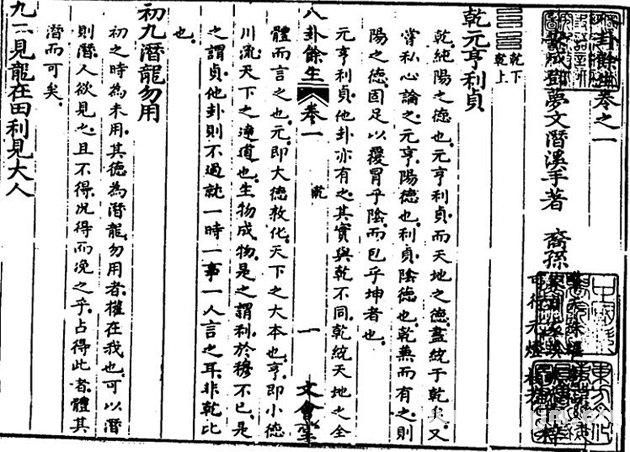 八卦餘生卷之一
安成鄧夢文潛溪手著 裔孫
乾下
乾上
乾元亨利貞
乾純陽之德也元亨利貞而天地之德盡統于乾矣又
嘗私心論之元亨陽德也利貞陰德也乾兼而有之則
陽之德固足以覆冒乎陰而包乎坤者也
元亨利貞他卦亦有之其實與乾不同乾統天地之全
八卦餘生 卷一 乾 一 文會堂
體而言之也元即大德敦化天下之大本也亨即小德
川流天下之達道也生物成物是之謂利於穆不已是
之謂貞他卦則不過就一時一事一人言之耳非乾比
也
初九潛龍勿用
初之時為未用其德為潛龍勿用者權在我也可以潛
則潛人欲見之且不得況得而浼之乎占得此者體其
潛而可矣
九二見龍在田利見大人